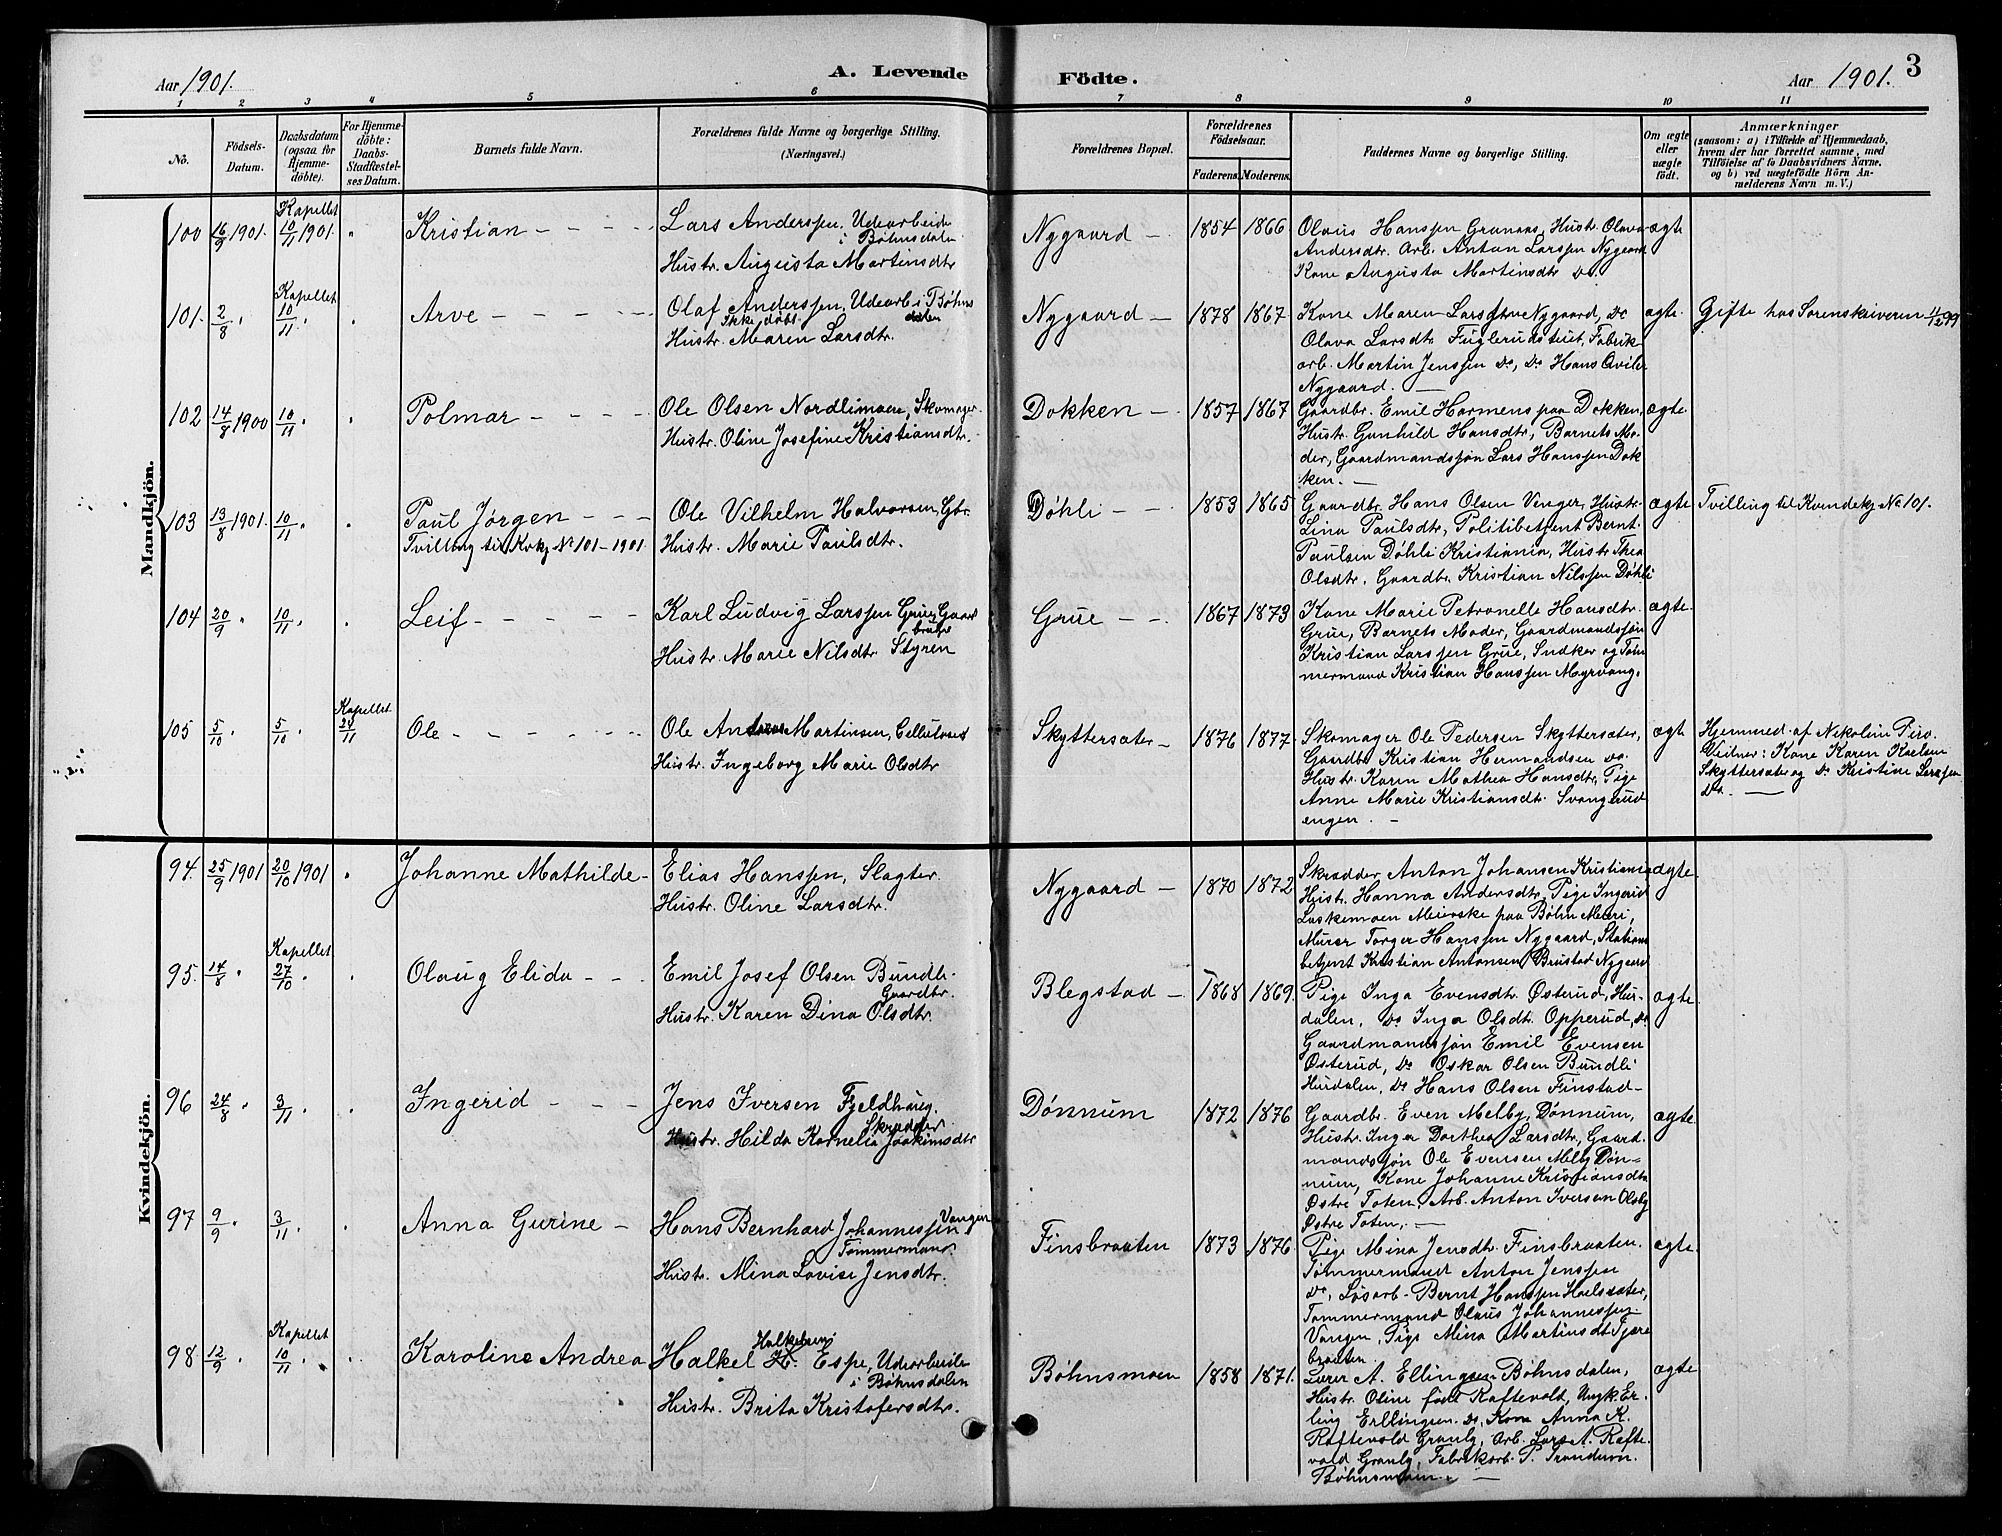 Aar 1901.
A. Levende
Födte.
Aar 1901.
3
1 2 3 4 5 6 7 8 9 10 11
No.
Födsels-
Datum.
Daabsdatum
(ogsaa for
Hjemme-
döbte).
For Hjemme-
döbte:
Daabs-
Stadfæstel-
ses Datum.
Barnets fulde Navn.
Forældrenes fulde Navne og borgerlige Stilling.
(Næringsvei.)
Forældrenes Bopæl.
Forældrenes
Födselsaar.
Faderens. Moderens.
Faddernes Navne og borgerlige Stilling.
Om ægte
eller
uægte
födt.
Anmærkninger
(saasom: a) i Tilfælde af Hjemmedaab,
hvem der har forrettet samme, med
Tilföielse af to Daabsvidners Navne.
og b) ved uægtefödte Börn An-
melderens Navn m. V.)
Mandkjön.
100 16/9 1901. Kapellet 10/11 1901. "
Kristian
Lars Anderssen, Udearbeide
i Bøhnsdalen
Hustr. Augusta Martinsdtr
Nygaard 1854 1866
Olaus Hanssen Granaas, Hustr. Olava
Andersdtr. Arb. Anton Larssen Nygaard
Kone Augusta Martinsdtr Do.
ægte
101. 2/8 " Kapellet 10/11 "
Arve
Olaf Anderssen, Udearb i Bøhns
dalen
Ikke døbt
Hustr. Maren Larsdtr.
Nygaard 1878 1867.
Kone Maren Larsdtr Nygaard, Do
Olava Larsdtr Fuglerudstuet, Fabrik
arb. Martin Jenssen Do, Do Hans
Nygaard.
ægte.
Gifte hos Sorenskriveren 11/12 99
102 14/8 1900 10/11 "
Polmar
Ole Olsen Nordlimoen, Skomager.
Hustr. Oline Josefine Kristiansdtr.
Dokken 1857 1867
Gaardbr. Emil Harmens paa Dokken,
Hustr. Gunhild Hansdtr, Barnets Mo-
der, Gaardmandssøn Lars Hanssen Dok
ken.
ægte
103 13/8 1901. 10/11 "
Paul Jørgen
Tvilling til Kvkj No 101-1901.
Ole Vilhelm Halvorsen, Gbr.
Hustr. Marie Paulsdtr.
Døhli 1853 1865
Gaardbr. Hans Olsen Venger, Hustr.
Lina Paulsdtr, Politibetjent Bernt.
Paulsen Døhli Kristiania, Hustr Thea
Olsdtr, Gaardbr. Kristian Nilssen Døhli
ægte
Tvilling til Kvindekj No 101.
104 20/9 " 10/11 "
Leif
Karl Ludvig Larssen Grue, Gaard
bruger
Hustr. Marie Nilsdtr. Styren
Grue 1867 1873
Kone Marie Petronelle Hansdtr.
Grue, Barnets Moder, Gaardmandssøn
Kristian Larssen Grue, Snedker og Tøm
mermand Kristian Hanssen Myrvang.
ægte
105 5/10 5/10 " Kapellet 24/11
Ole
Ole Andreas Martinsen, Cellulosearb
Hustr. Ingeborg Marie Olsdtr
Skyttersæter 1876 1877.
Skomager Ole Pedersen Skyttersæter,
Gaardbr. Kristian Hermandsen Do.
Hustr. Karen Mathea Hansdtr, Pige
Anne Marie Kristiansdtr. Svangerud
engen.
ægte
Hjemmed. af Nikoline Piro.
Vidner: Kone Karen Karlsen
Skyttersæter og Do Kristine Larssen
Do.
Kvindekjön.
94. 25/9 1901 20/10 1901 "
Johanne Mathilde
Elias Hanssen, Slagter.
Hustr. Oline Larsdtr.
Nygaard 1870 1872
Skrædder Anton Johansen Kristiania
Hustr. Hanna Andersdtr, Pige Ingerid
Laskemoen Meierske paa Bøhn Meieri,
Murer Torger Hanssen Nygaard, Stations
betjent Kristian Antonsen Brustad Nygaard
ægte
95. 14/8 " Kapellet 27/10 "
Olaug Elida
Emil Josef Olsen Bundli.
Gaardbr.
Hustr. Karen Dina Olsdtr.
Blegstad 1868 1869.
Pige Inga Evensdtr. Østerud, Hur-
dalen, Do Inga Olsdtr. Opperud, Do
Gaardmandssøn Emil Evensen
Østerud, Do Oskar Olsen Bundli
Hurdalen, Do Hans Olsen Finstad
ægte
96 24/8 " 3/11 "
Ingerid
Jens Iversen Fjeldhaug.
Skrædder
Hustr. Hilda Kornelia Joakimsdtr
Dønnum 1872 1876
Gaardbr. Even Melby, Dønnum,
Hustr. Inger Dorthea Larsdtr, Gaard
mandssøn Ole Evensen Melby Døn-
num, Kone Johanne Kristiansdtr
Østre Toten, Arb. Anton Iversen Olsby
Østre Toten.
ægte
97 9/9 " 3/11 "
Anna Gurine
Hans Bernhard Johannessen Vangen
Tømmermand
Hustr. Mina Lovise Jensdtr.
Finsbraaten 1873 1876.
Pige Mina Jensdtr. Finsbraaten.
Tømmermand Anton Jenssen
Do, Løsarb. Bernt Hanssen Hælsæter,
Tømmermand Olaus Johannessen
Vangen, Pige Mina Martinsdtr Tjære
braaten
ægte
98. 12/9 " Kapellet 10/11 "
Karoline Andrea
Halkelsen
Halkel H. Espe, Udearbeide
i Bøhnsdalen
Hustr. Brita Kristofersdtr.
Bøhnsmoen 1858 1871.
Lærer A. Ellingsen Bøhnsdalen,
Hustr. Oline født Raftevold, Ungk. Er-
ling Erllingsen Do, Kone Anna K.
Raftevold Granly, Arb. Lars A. Rafte.
vold Granly, Fabrikarb. P.
Bøhnsmoen.
ægte